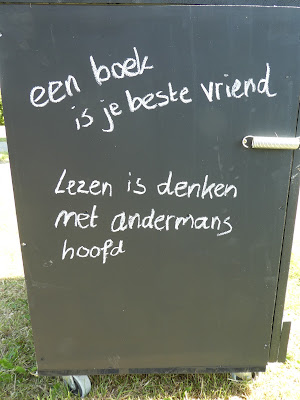 een boek
is je beste vriend
Lezen is denken
met andermans
hoofd